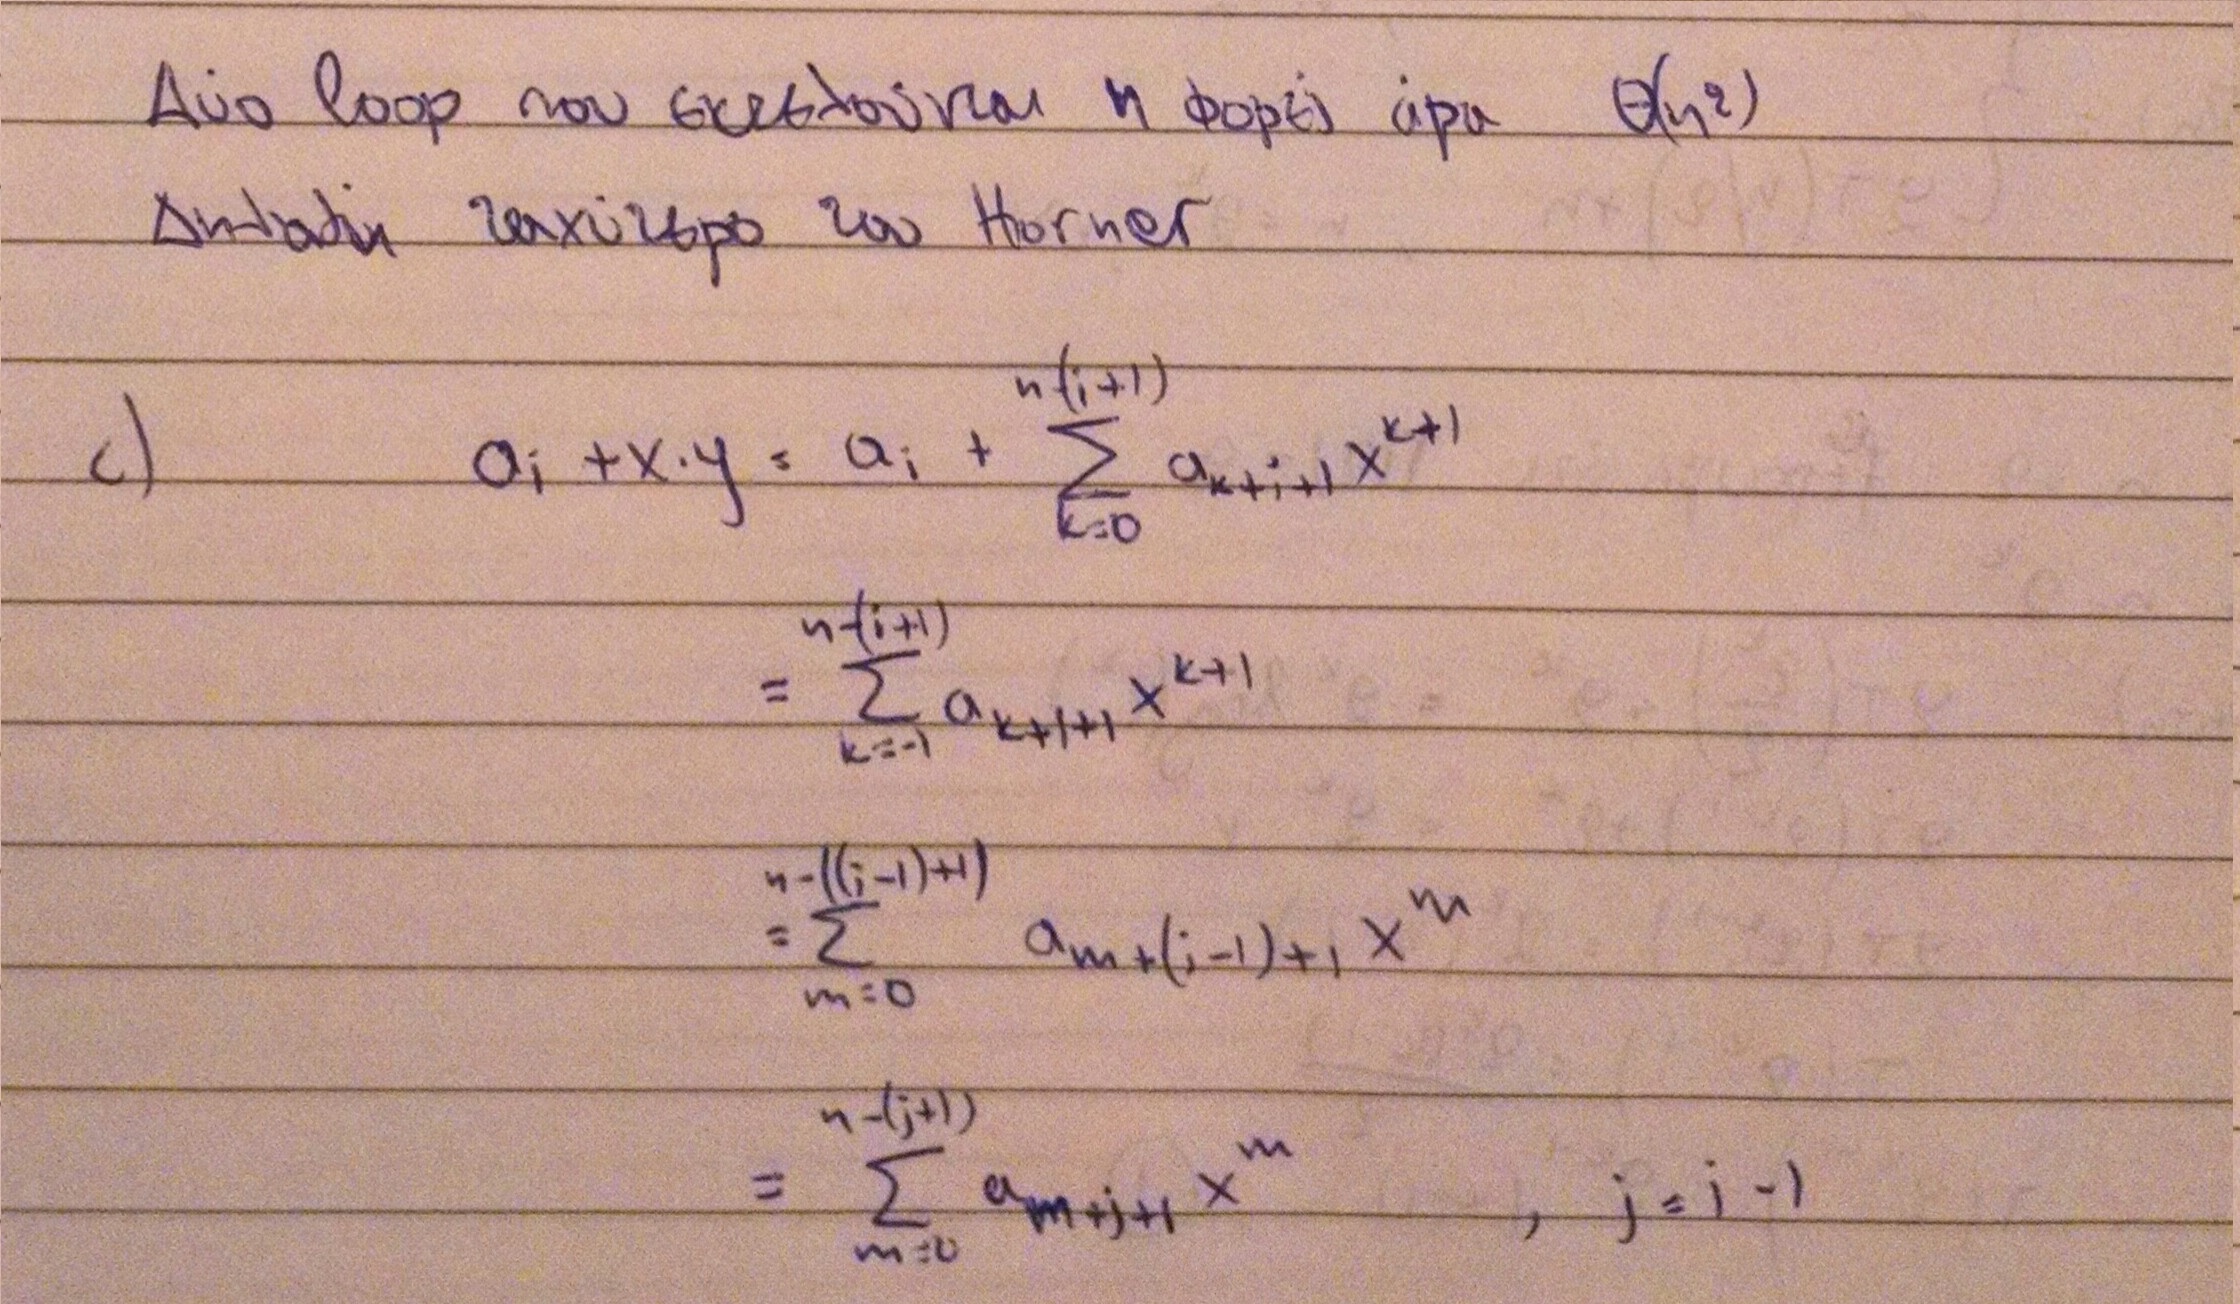 Δύο loop που εκτελούνται n φορές άρα Θ(n²)
Δηλαδή ταχύτερο του Horner
c) aᵢ + x·y = aᵢ + ∑_{k=0}^{n-(i+1)} a_{k+i+1} x^{k+1}
= ∑_{k=-1}^{n-(i+1)} a_{k+1+1} x^{k+1}
= ∑_{m=0}^{n-((i-1)+1)} a_{m+(i-1)+1} x^m
= ∑_{m=0}^{n-(j+1)} a_{m+j+1} x^m , j = i - 1